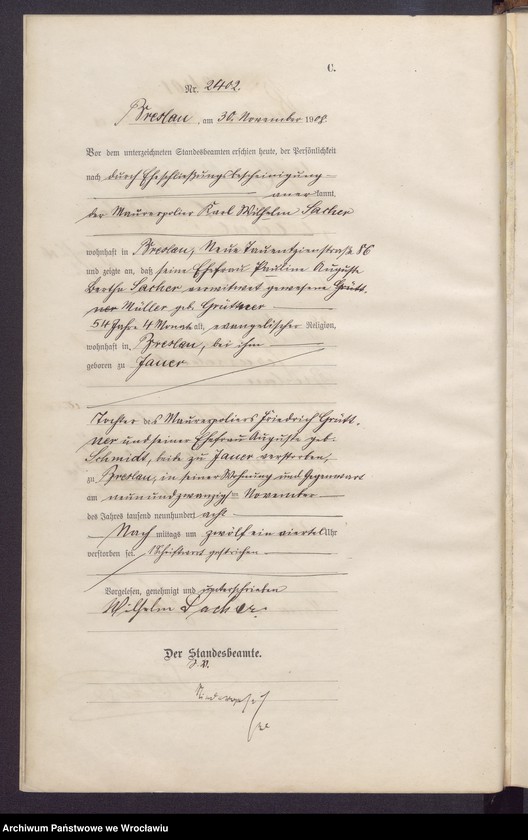 C.
Nr. 2402.
Breslau, am 30. November 1908.
Vor dem unterzeichneten Standesbeamten erschien heute, der Persönlichkeit
nach durch Eheschließungsbescheinigung
anerkannt,
der Maurerpolier Karl Wilhelm Sacher
wohnhaft in Breslau, Neue Tauentzienstraße 86
und zeigte an, daß seine Ehefrau Pauline Auguste
Bertha Sacher verwitwet gewesene Grütt-
ner Müller geb. Grüttner
54 Jahre 4 Monate alt, evangelischer Religion,
wohnhaft in Breslau, bei ihm
geboren zu Jauer
Tochter des Maurerpoliers Friedrich Grütt-
ner und seiner Ehefrau Auguste geb.
Schmidt, beide zu Jauer verstorben,
zu Breslau, in seiner Wohnung und Gegenwart
am neunundzwanzigten November
des Jahres tausend neunhundert acht
Nachmittags um zwölf ein viertel Uhr
verstorben sei. gestrichen
Vorgelesen, genehmigt und unterschrieben
Wilhelm Sacher.
Der Standesbeamte.
Archiwum Państwowe we Wrocławiu